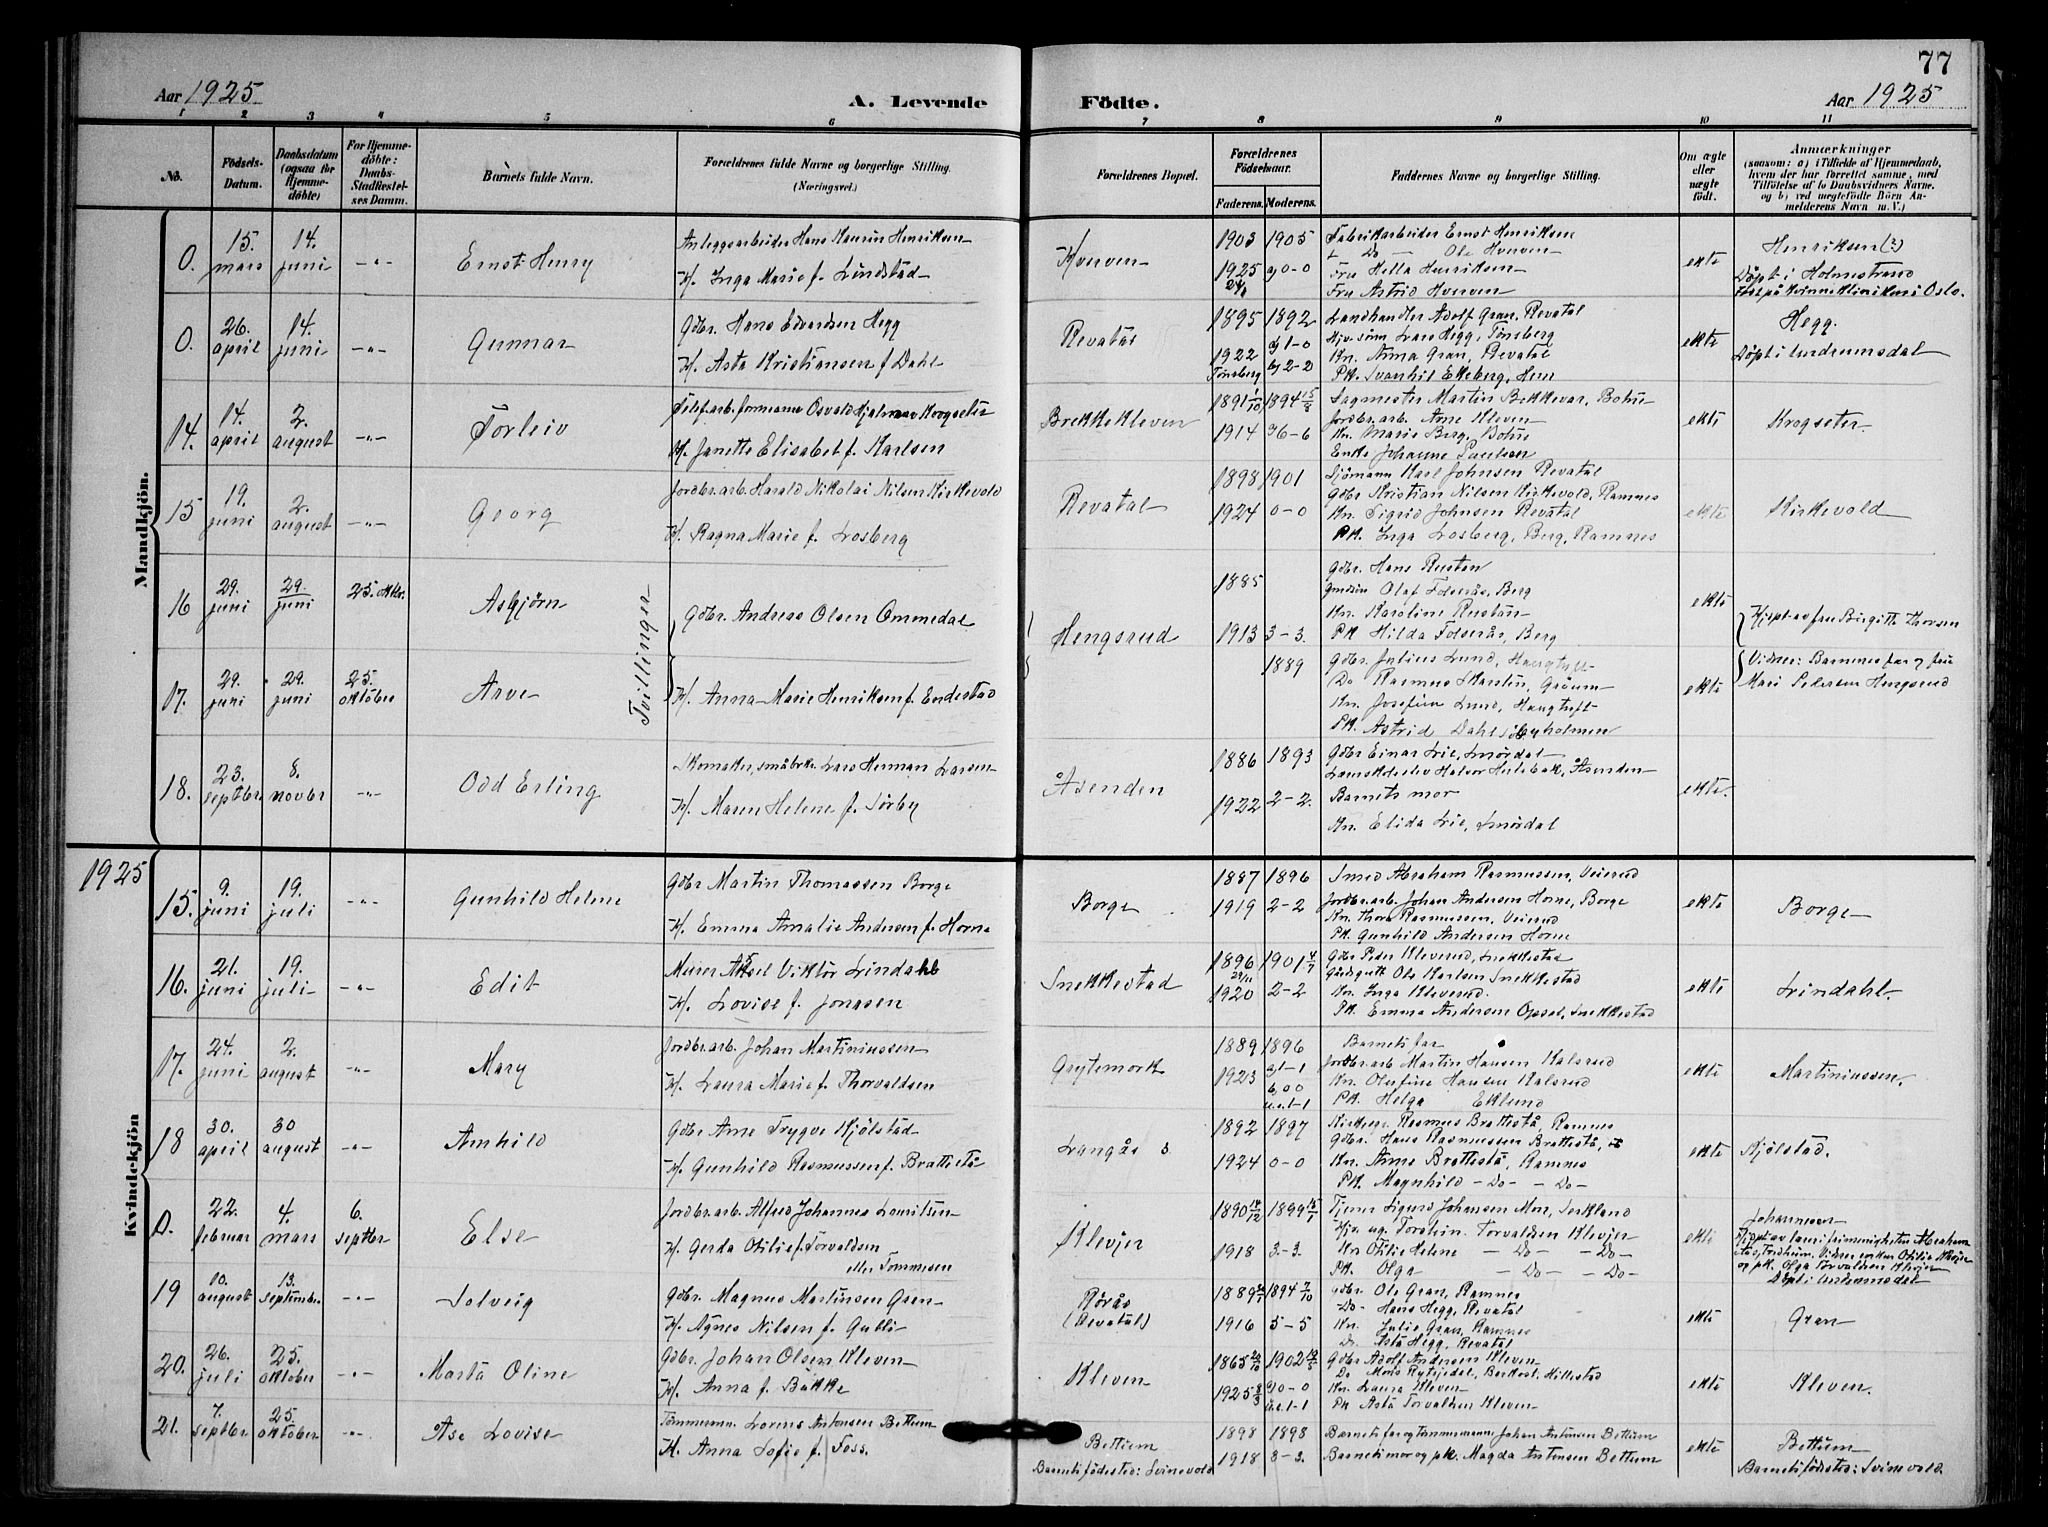 77
Aar 1925
A. Levende
Födte.
Aar 1925
1 2 3 4 5 6 7 8 9 10 11
No.
Födsels-
Datum.
Daabsdatum
(ogsaa for
Hjemme-
döbte)
For Hjemme-
döbte:
Daabs-
Stadfæstel-
ses Datum.
Barnets fulde Navn.
Forældrenes fulde Navne og borgerlige Stilling.
(Næringsvei.)
Forældrenes Bopæl.
Forældrenes
Födselsaar.
Faderens. Moderens.
Faddernes Navne og borgerlige Stilling.
Om ægte
eller
uægte
født.
Anmærkninger
(saasom: a) i Tilfælde af Hjemmedaab,
hvem der har forrettet samme, med
Tilföielse af to Daabsvidners Navne.
og b) ved uegtefödte Börn An-
melderens Navn m. V.)
Mandkjön.
0. 15. mars 14. juni -"- Ernst Henry
Anleggsarbeider Hans Kaurin Henriksen
K. Inga Marie f. Lindstad
Kverven
1903 1905
1925 g 0-0
Fabrikarbeider Ernst Henriksen
Do Ole Hverven
Fru Hella Henriksen
Fru Astrid Hverven
ekte
Henriksen (?)
Döpt i Holmestrand
Född på Kvinneklinikken i Oslo.
0. 26. april 14. juni -"- Gunnar
Gdbr. Hans Edvardsen Hegg
K. Asta Kristiansen f Dahl
Revatal
1895 1892
1922 g 1-0
Tønsberg b 2-2
Landhandler Adolf Gran, Revatal
Hjv. sönn Lars Hegg, Tønsberg
Kn. Anna Gran, Revatal
Pk. Svanhil Ekeberg, Hem
ekte
Hegg.
Döpt i Undrumsdal
14. 14. april 2. august -"- Torleiv
Telef.arb. formann Osvald Hjalmar Krogseter
K. Janette Elisabet f. Karlsen
Brekke Kleven
1891 1/10 1894 15/8
1914 g 6-6
Sagmester Martin Bekkevar, Bohus
Jordbr.arb. Arne Kleven
Kn. Marie Berg, Bohus
Enke Johanne Paulsen
ekte
Krogseter.
15 19. juni 2. august -"- Georg
Jordbr.arb. Harald Nikolai Nilsen Kirkevold
K. Ragna Marie f. Losberg
Revatal
1898 1901
1924 0-0
Sjömann Karl Johnsen Revatal
Gdbr Kristian Nilsen Kirkevold, Ramnes
Kn. Sigrid Johnsen Revatal
Pk. Inga Losberg, Berg, Ramnes
ekte
Kirkevold
16 29. juni 29. juni 25. oktbr. Asbjørn
Tvillinger
Gdbr. Andreas Olsen Ommedal
Hengsrud
1885
1913 3-3.
Gdbr. Hans Rustan
Olaf Folserås, Berg
Kn. Karoline Rustan
Pk. Hilda Folserås, Berg
ekte
Hjdpt av fru Birgitte Thorsen
17. 29. juni 29. juni 25. oktober Arve
K. Anna Marie Henriksen f. Endestad
1889
Gdbr. Julius Lund, Haugtuft
Do Rasmus Martin, Gråum
Kn. Josefine Lund, Haugtuft
Pk. Astrid Dahl, Byholmen
ekte
Vidner: Barnnes far og fru
Mari Petersen Hengsrud
18. 23. septbr. 8. novbr -"- Odd Erling
Skomaker, småbrk. Lars Herman Larsen
K. Maren Helene f. Sørby
Åsenden
1886 1893
1922 2-2.
Gdbr Einar Lie, Smørdal
Halvor Holebak, Åsenden
Barnets mor
Kn. Elida Lie, Smørdal
ekte.
1925
Kvindekjön
15. 9. juni 19. juli -"- Gunhild Helene
Gdbr Martin Thomassen Borge
K. Emma Amalie Andersen f. Horne
Borge
1887 1896
1919 2-2
Smed Abraham Rasmussen, Veierud
Jordbr.arb. Johan Andersen Horne, Borge
Kn. Thora Rasmussen, Veierud
Pk. Gunhild Andersen Horne
ekte
Borge
16. 21. juni 19. juli -"- Edit
Murer Aksel Viktor Lindahl
K. Lovise f. Jonasen
Snekkestad
1896 29/11 1901 4/7
1920 2-2
Gdbr Peder Kleverud, Snekkestad
Gårdsgutt Ole Karlsen Snekkestad
Kn. Inga Kleverud.
Pk. Emma Andersen Opsal, Snekkestad
ekte
Lindahl.
17. 24. juni 2. august -"- Mary
Jordbr.arb. Johan Martiniussen
K. Laura Marie f. Thorvaldsen
Grytemork
1889 1896
1923 g 1-1
b. 0 0
u.e. 1-1
Barnets far
Jordbr.arb Martin Hansen Kalsrud
Kn. Olufine Hansen Kalsrud
Pk. Helga Eklund
ekte
Martiniussen.
18 30. april 30 august -"- Arnhild
Gdbr Arne Trygve Kjølstad
K. Gunhild Rasmussen f. Brattestå
Langås s
1892 1897
1924 0-0
Kirkesr. Rasmus Brattestå, Ramnes
Gdbr. Hans Rasmussen Brattestå,
Kn. Anne Brattestå, Ramnes
Pk. Magnhild - Do - - Do -
ekte
Kjølstad.
0. 22. februar 4. mars 6. septbr Else
Jordbr.arb. Alfred Johannes Lauritsen
K. Gerda Otilie f. Torvaldsen
eller Tommesen
Klevjer
1890 14/12 1899 15/1
1918 3-3.
Tjener Sigurd Johansen Moe,
Torstein Torvaldsen Klevjer
Kn Otilie Helene - Do - - Do -
Pk. Olga - Do - - Do -
ekte
Johannesen
og pk. Olga Torvaldsen Klevjer
Döpt i Undrumsdal
19 10. august 13. september -"- Solveig
Gdbr. Magnus Martinsen Gran
K. Agnes Nilsen f. Gulli
Rørås
(Revatal)
1889 1894 7/10
1916 5-5
Gdbr. Ole Gran, Ramnes
Do Hans Hegg, Revatal
Kn. Julie Gran, Ramnes
Do. Asta Hegg, Revatal
ekte
Gran
20. 26. juli 25. oktober -"- Marta Oline
Gdbr. Johan Olsen Kleven
K. Anna f. Bakke
Kleven
1865 1902
1925 g 0-0
u.e. 1-1
Gdbr Adolf Andersen Kleven
Do Mons Rytjedal, Hillestad
Kn. Laura Kleven
Pk Asta Torvaldsen Kleven
ekte
Kleven.
21. 7. septbr 25. oktober -"- Åse Lovise
Tømmerm. Lorens Antonsen Bettum
K. Anna Sofie f. Foss.
Bettum
Barnets fødested: Svinevold
1898 1898
1918 3-3.
Barnets far og tømmermann Johan Antonsen Bettum
Barnets mor og pk. Magda Antonsen Bettum
ekte
Bettum
Barnets fødested: Svinevold.